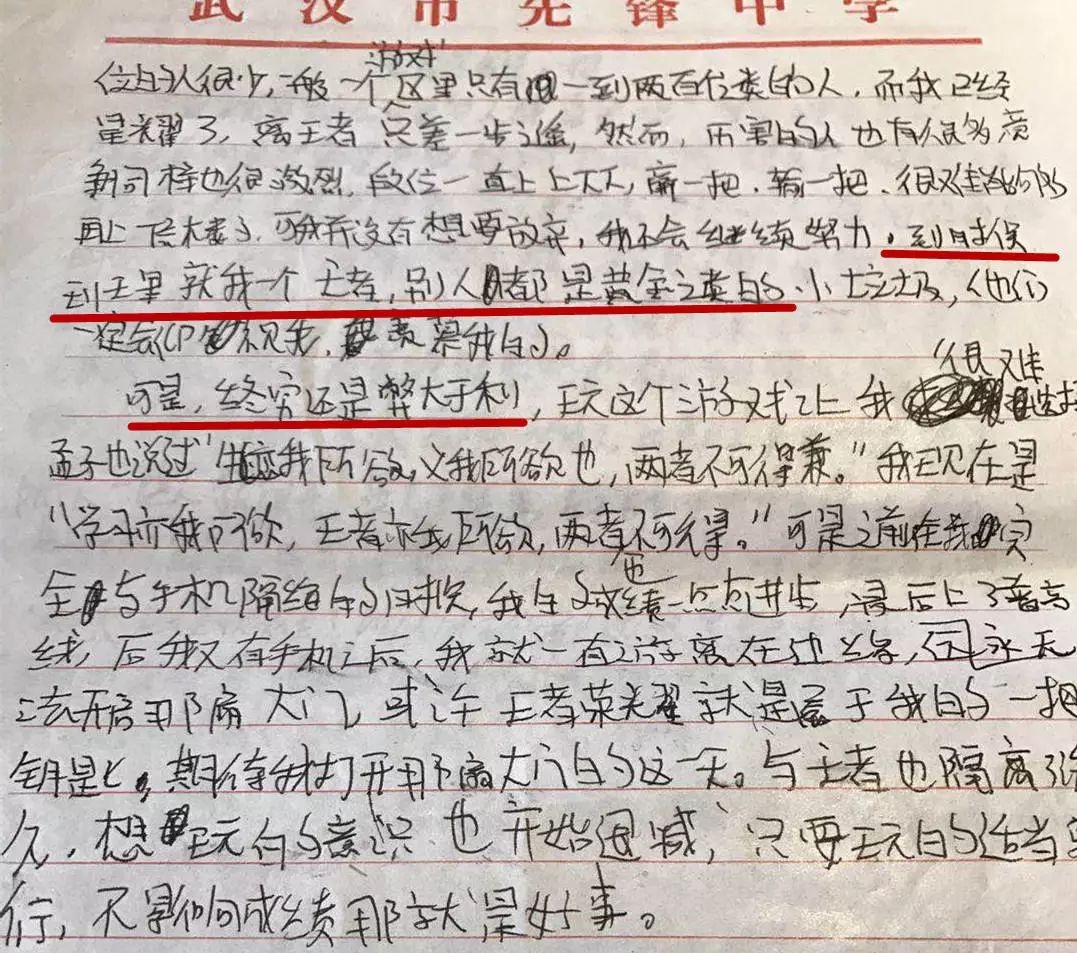 武汉市先锋中学
位的人很少,一般一个游戏区里只有一到两百位类的人,而我已经
星耀了,离王者只差一步之遥,然而,厉害的人也有很多竞
争同样也很激烈,段位一直上上下下,赢一把,输一把,很难
再上层楼了,可我并没有想要放弃,我不会继续努力,到时候
到王里就我一个王者,别人都是黄金之类的小垃圾,他们
一定会仰视我,羡慕我的。
可是,终穷还是弊大于利,玩这个游戏让我很难
孟子也说过"生亦我所欲,义我所欲也,两者不可得兼。"我现在是
"学习亦我所欲,王者亦我所欲,两者不可得。"可是之前在我完
全与手机隔绝的时候,我的成绩也一点点进步,最后上了普高
线,后我又有手机之后,我就一直游离在边缘,永无
法开启那扇大门,或许王者荣耀就是属于我的一把
钥匙,期待我打开那扇大门的这一天。与王者也隔离了
久,想玩的意识也开始退减,只要玩的适当
行,不影响成绩那就是好事。